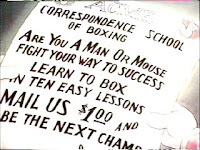 ACME
CORRESPONDENCE SCHOOL
OF BOXING
ARE YOU A MAN OR MOUSE
FIGHT YOUR WAY TO SUCCESS
LEARN TO BOX
IN TEN EASY LESSONS
MAIL US $1.00 AND
BE THE NEXT CHAMP